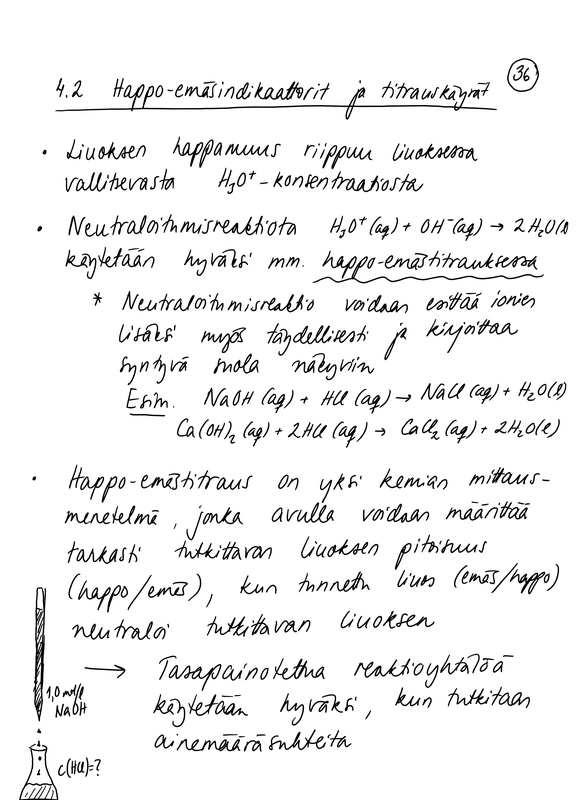 36
4.2 Happo-emäsindikaattorit ja titrauskäyrät
• Liuoksen happamuus riippuu liuoksessa
vallitsevasta H₃O⁺-konsentraatiosta
• Neutraloitumisreaktiota H₃O⁺(aq) + OH⁻(aq) → 2H₂O(l)
käytetään hyväksi mm. happo-emästitrauksessa
* Neutraloitumisreaktio voidaan esittää ionien
lisäksi myös täydellisesti ja kirjoittaa
syntyvä suola näkyviin
Esim. NaOH (aq) + HCl (aq) → NaCl (aq) + H₂O(l)
Ca(OH)₂ (aq) + 2HCl (aq) → CaCl₂ (aq) + 2H₂O(l)
• Happo-emästitraus on yksi kemian mittaus-
menetelmä, jonka avulla voidaan määrittää
tarkasti tutkittavan liuoksen pitoisuus
(happo/emäs), kun tunnettu liuos (emäs/happo)
neutraloi tutkittavan liuoksen
→ Tasapainotettua reaktioyhtälöä
käytetään hyväksi, kun tutkitaan
ainemääräsuhteita
1,0 mol/l
NaOH
c(HCl)=?